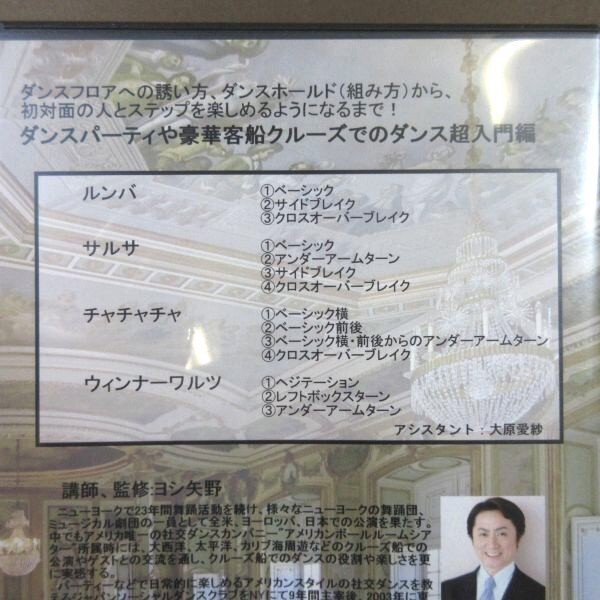 ダンスフロアへの誘い方、ダンスホールド(組み方)から、
初対面の人とステップを楽しめるようになるまで!
ダンスパーティや豪華客船クルーズでのダンス超入門編
ルンバ ①ベーシック
②サイドブレイク
③クロスオーバーブレイク
サルサ ①ベーシック
②アンダーアームターン
③サイドブレイク
④クロスオーバーブレイク
チャチャチャ ①ベーシック横
②ベーシック前後
③ベーシック横・前後からのアンダーアームターン
④クロスオーバーブレイク
ウィンナーワルツ ①ヘジテーション
②レフトボックスターン
③アンダーアームターン
アシスタント:大原愛紗
講師、監修:ヨシ矢野
ニューヨークで23年間舞踊活動を続け、様々なニューヨークの舞踊団、
ミュージカル劇団の一員として全米、ヨーロッパ、日本での公演を果たす。
中でもアメリカ唯一の社交ダンスカンパニー"アメリカンボールルームシア
ター"所属時には、大西洋、太平洋、カリブ海周遊などのクルーズ船での
公演やゲストとの交流を通し、クルーズ船でのダンスの役割や楽しさを更
に実感する。
パーティーなどで日常的に楽しめるアメリカンスタイルの社交ダンスを教
えるジャパンソーシャルダンスクラブをNYにて9年間主宰後、2003年に東